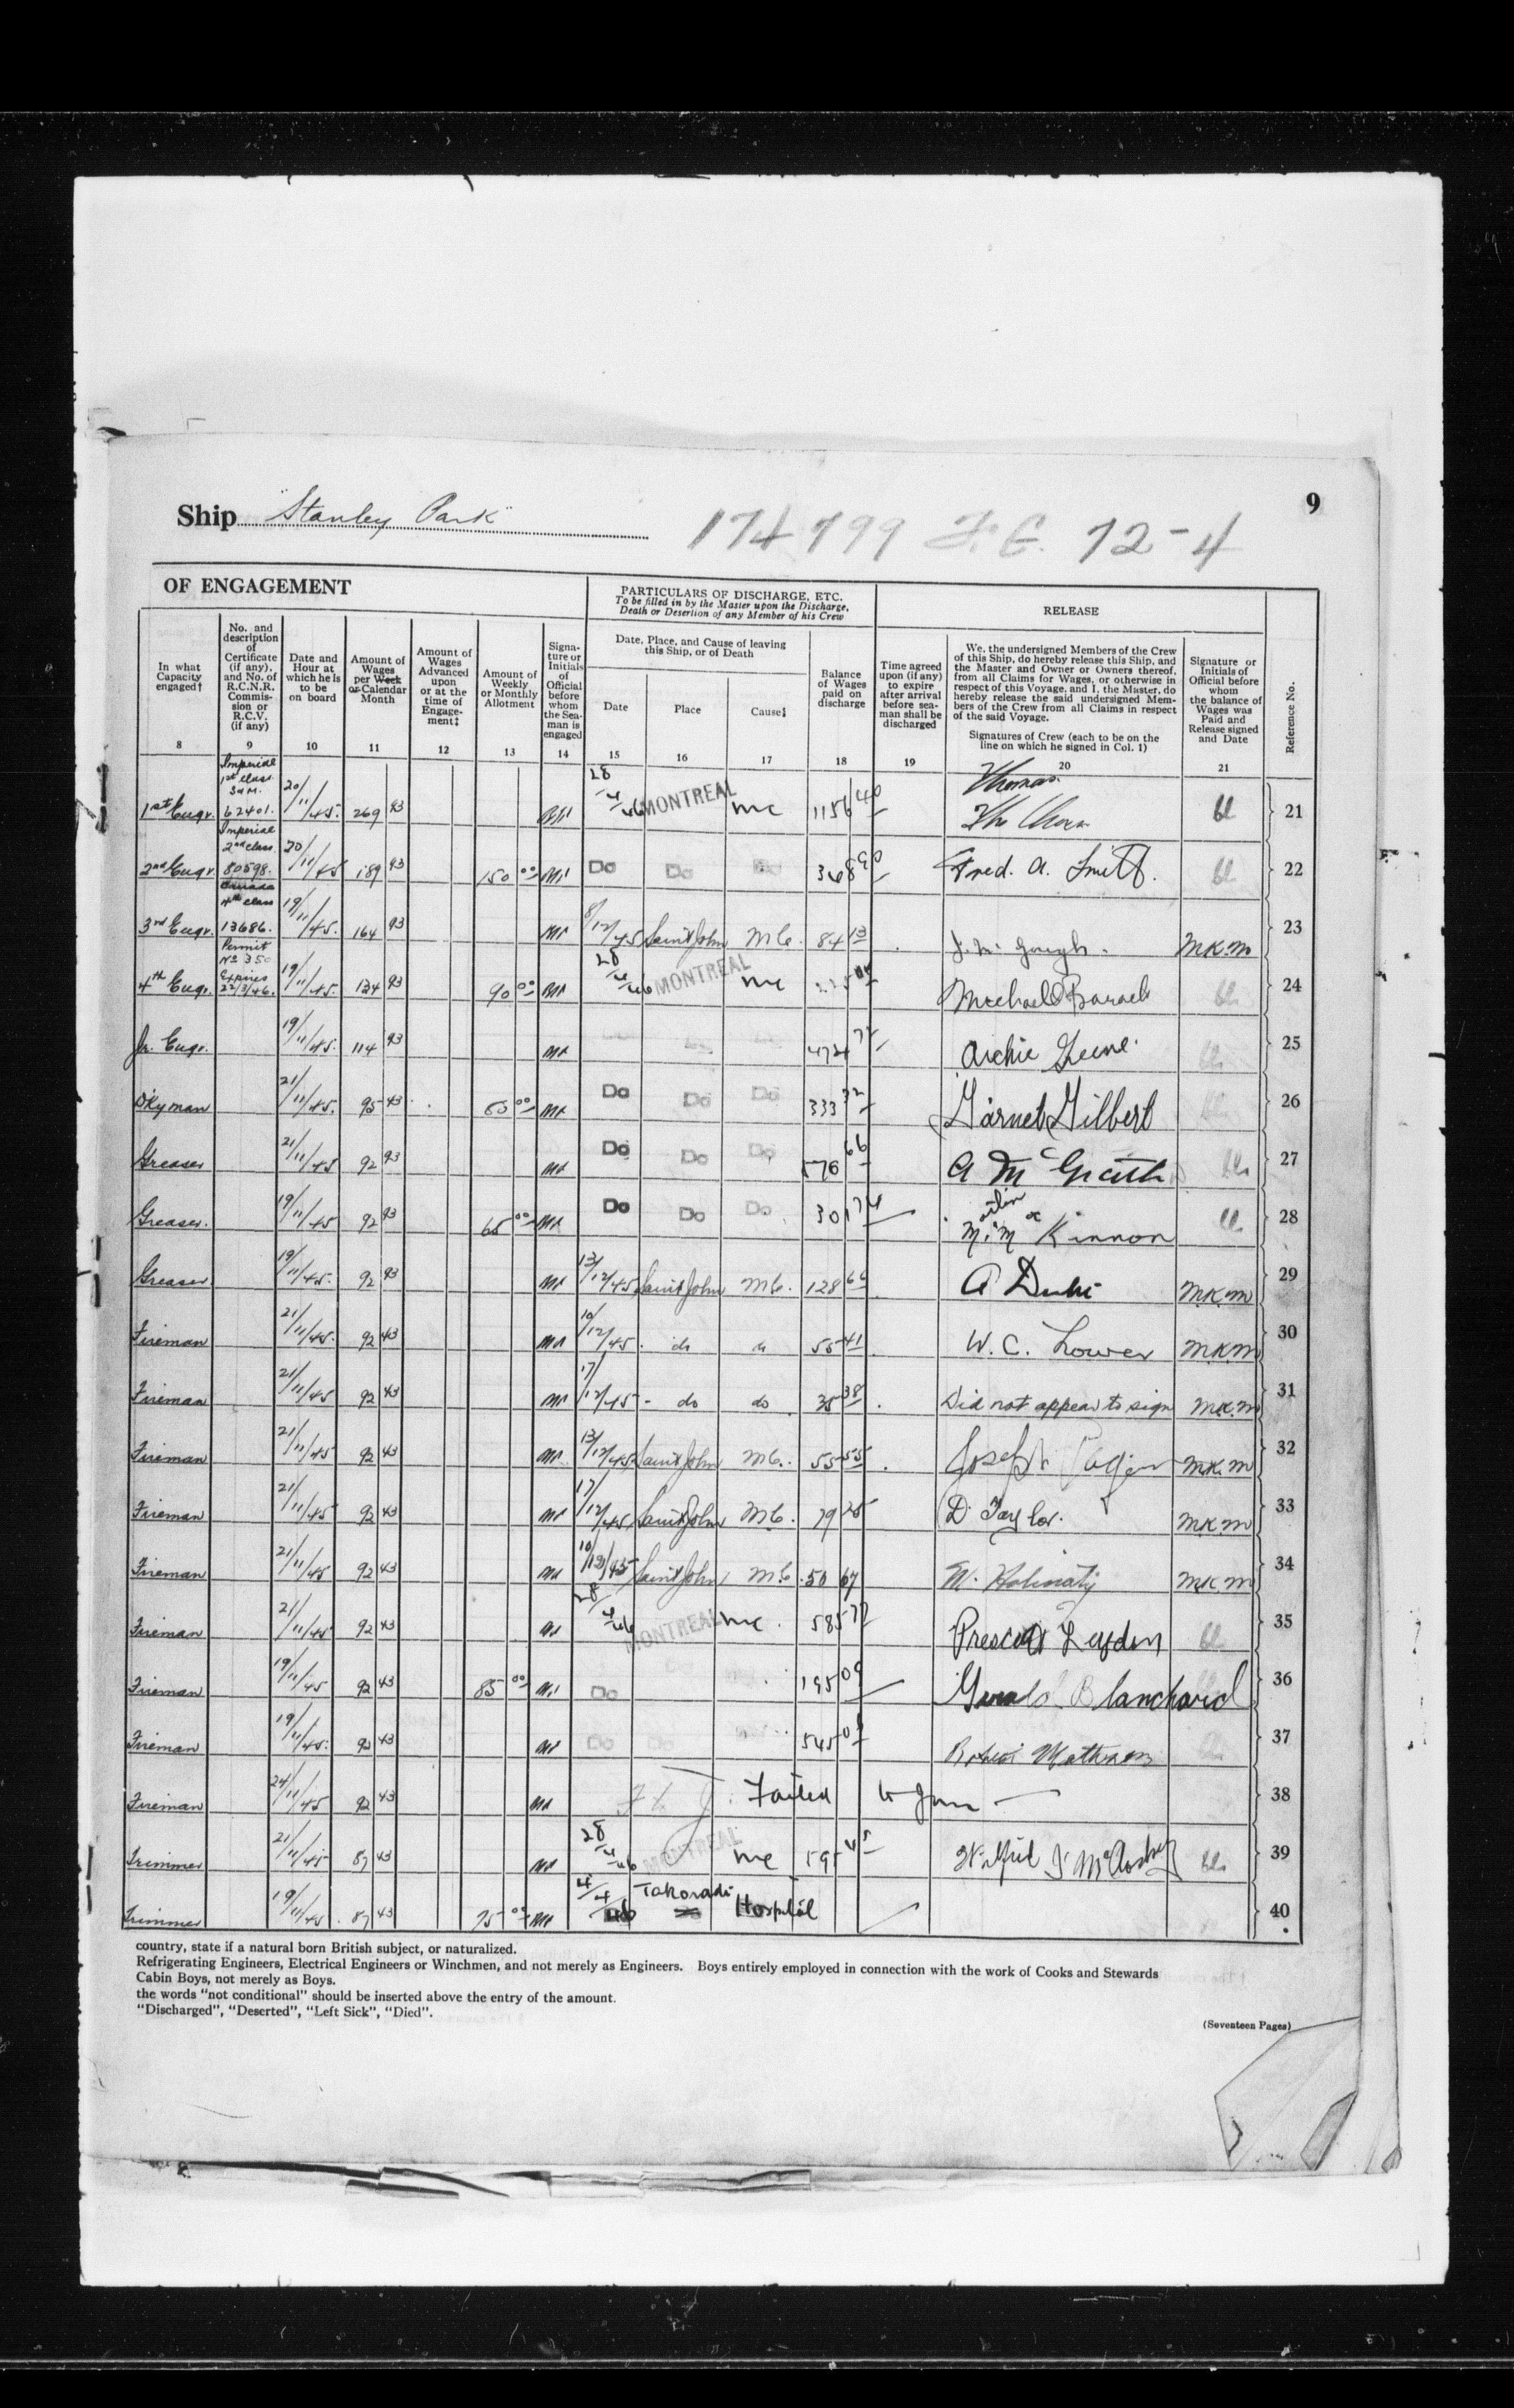 Ship "Stanley Park"
9
174799 F.E. 72-4
OF ENGAGEMENT
PARTICULARS OF DISCHARGE, ETC.
To be filled in by the Master upon the Discharge, Death or Desertion of any Member of his Crew
RELEASE
In what Capacity engaged†
No. and description of Certificate (if any), and No. of R.C.N.R. Commission or R.C.V. (if any)
Date and Hour at which he is to be on board
Amount of Wages per Week or Calendar Month
Amount of Wages Advanced upon or at the time of Engagement‡
Amount of Weekly or Monthly Allotment
Signature or Initials of Official before whom the Seaman is engaged
Date, Place, and Cause of leaving this Ship, or of Death
Date
Place
Cause‖
Balance of Wages paid on discharge
Time agreed upon (if any) to expire after arrival before seaman shall be discharged
We, the undersigned Members of the Crew of this Ship, do hereby release this Ship, and the Master and Owner or Owners thereof, from all Claims for Wages, or otherwise in respect of this Voyage, and I, the Master, do hereby release the said undersigned Members of the Crew from all Claims in respect of the said Voyage.
Signatures of Crew (each to be on the line on which he signed in Col. 1)
Signature or Initials of Official before whom the balance of Wages was Paid and Release signed and Date
Reference No.
8 9 10 11 12 13 14 15 16 17 18 19 20 21
1st Engr. Imperial 1st class 62401. 20/11/45. 269 93 28/4/46 MONTREAL MC 1156 40 Thomas 21
2nd Engr. Imperial 2nd class. 80598. 20/11/45 189 93 150 00 Do Do Do 368 90 Fred. A. Smith. 22
3rd Engr. Canada 4th class 13686. 19/11/45. 164 93 8/12/45 Saint John M.C. 84 13 M.K.M 23
4th Engr. Permit No 350 Expires 22/3/46. 19/11/45. 134 93 90 00 28/4/46 MONTREAL MC Michael 24
Jr. Engr. 19/11/45. 114 93 Archie 25
D'kyman 21/11/45. 95 43 Do Do Do 333 32 Garnet Gilbert 26
Greaser 21/11/45 92 93 Do Do Do 66 A McGrath 27
Greaser. 19/11/45 92 93 65 00 Do Do Do 301 M. McKinnon 28
Greaser 19/11/45. 92 93 13/12/45 Saint John M.C. 128 66 A Dube M.K.M 29
Fireman 21/11/45. 92 43 10/12/45. do 55 41 W.C. Lower M.K.M 30
Fireman 21/11/45 92 43 17/12/45 - do do 38 Did not appear to sign M.K.M 31
Fireman 21/11/45 92 43 13/12/45 Saint John M.C. 55 55 Joseph M.K.M 32
Fireman 21/11/45 92 43 17/12/45 Saint John M.C. 79 25 D. Taylor. M.K.M 33
Fireman 21/11/45 92 43 10/12/45 Saint John M.C. 50 67 M.K.M 34
Fireman 21/11/45 92 43 28/4/46 MONTREAL MC. 585 Prescott Leyden 35
Fireman 19/11/45 92 43 85 00 Do 195 09 Gerald Blanchard 36
Fireman 19/11/45. 92 43 Do Do 545 37
Fireman 24/11/45 92 43 Failed to Join 38
Trimmer 21/11/45 87 43 28/4/46 MONTREAL MC 595 45 39
Trimmer 19/11/45. 87 43 75 00 4/4/46 Takoradi Hospital 40
country, state if a natural born British subject, or naturalized.
Refrigerating Engineers, Electrical Engineers or Winchmen, and not merely as Engineers. Boys entirely employed in connection with the work of Cooks and Stewards
Cabin Boys, not merely as Boys.
the words "not conditional" should be inserted above the entry of the amount.
"Discharged", "Deserted", "Left Sick", "Died".
(Seventeen Pages)